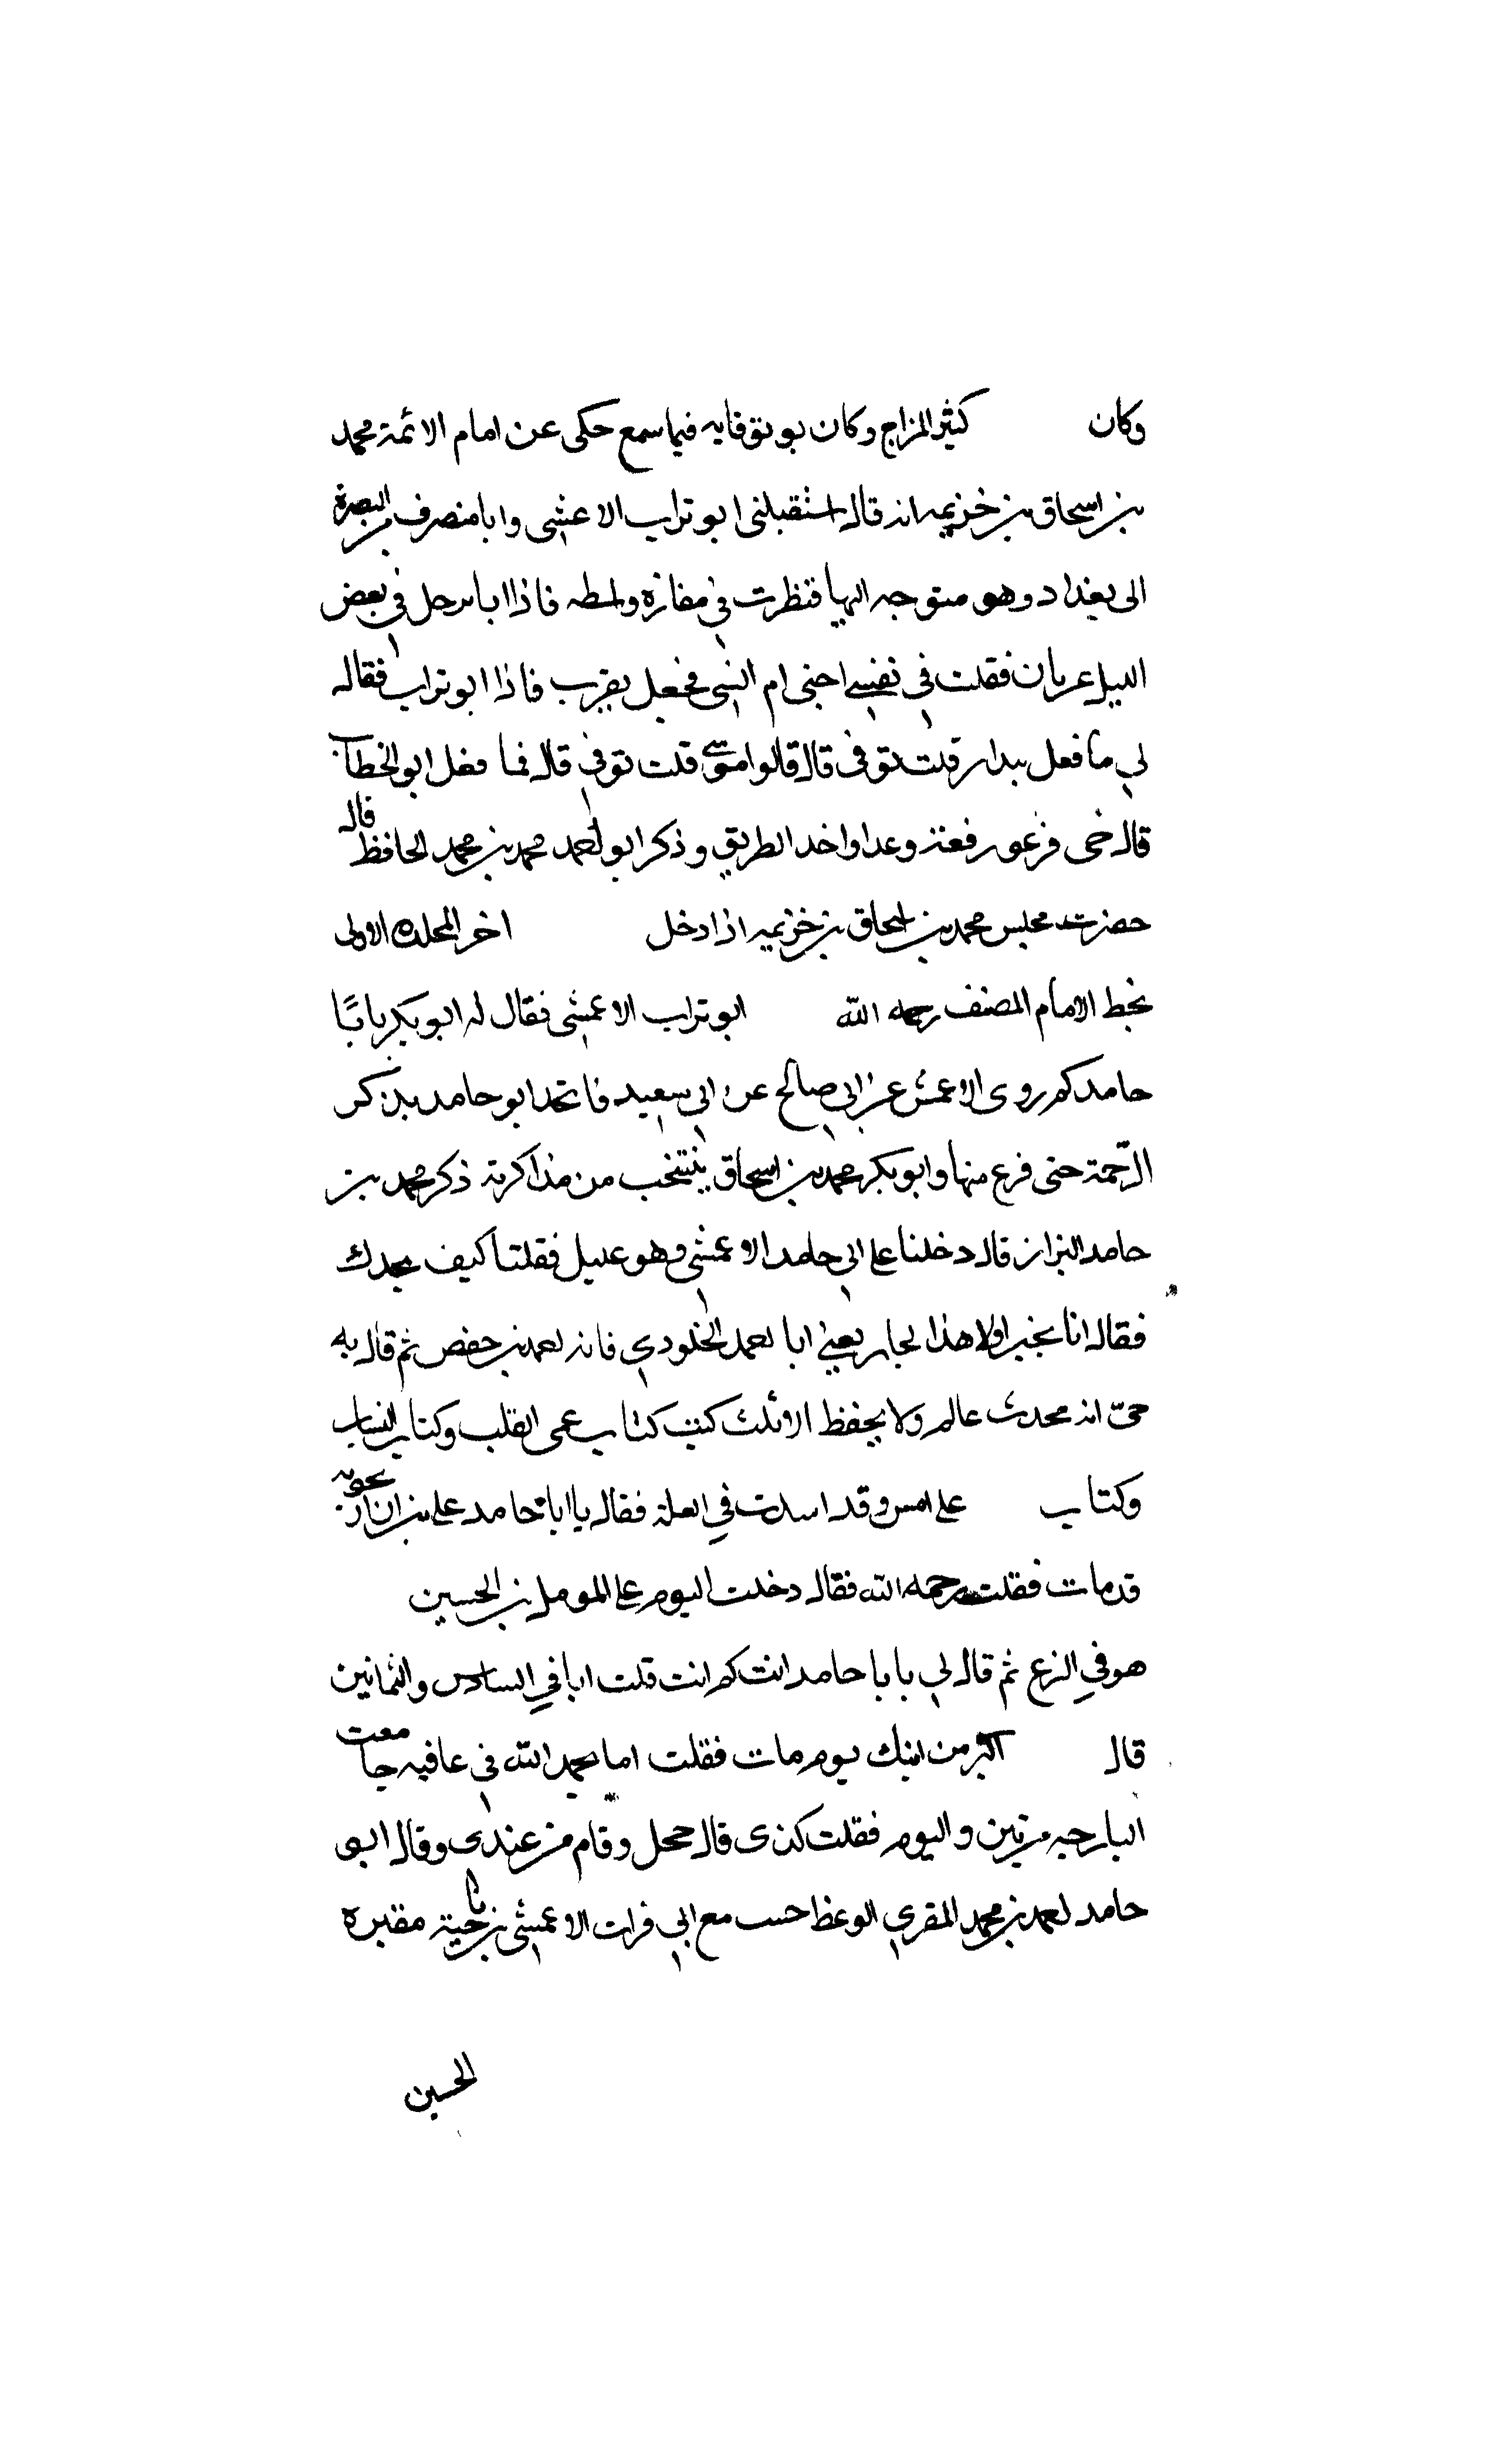 وكان كثير المزاج وكان بو تق فايه فيما سمع حكى عن امام الائمة محمد
بن اسحاق بن خزيمه انه قال استقبلنى ابو تراب الاعمشى وانا منصرف من البصرة
الى بغداد وهو متوجه اليها فنظرت في مفازه واسطه فاذا انا برجل في بعض
الليل عريان فقلت في نفسي اجنى ام انسى فجعل يقرب فاذا ابو تراب فقال
لي ما فعل بندار قلت توفى قال قالوا موسى قلت توفي قال فما فعل ابو الخطاب
قال حى فرعو رفعته وعدا واخذ الطريق وذكر ابو احمد محمد بن محمد الحافظ قال
حضرت مجلس محمد بن اسحاق بن خزيمه اذا دخل اخر المجلده الاولى
بخط الامام المصنف رحمه الله ابو تراب الاعمشى فقال له ابو بكر يابا
حامد كم روى الاعمش عن ابي صالح عن ابي سعيد فاتحد ابو حامد يذكر
الترجمة حتى فرغ منها وابو بكر محمد بن اسحاق ينتخب من مذاكرته ذكر محمد بن
حامد البزاز قال دخلنا على ابي حامد الاعمشى وهو عليل فقلنا كيف تجدك
فقال انا بخير لولا هذا الجار يعني ابا احمد الجلودي فانه احمد بن حفص ثم قال به
حى انه محدث عالم ولا يحفظ الا ثلث كتب كتاب عمى القلب وكتاب النسيان
وكتاب على امس وقد اسدت في العلة فقال يا ابا حامد على بن
قد مات فقلت رحمه الله فقال دخلت اليوم على المومل بن الحسين
هو في النزع ثم قال لي يا با حامد ابنت كم انت قلت انا في السادس والثمانين
قال اكبر من ابيك يوم مات فقلت انا بحمد الله في عافيه جامعت
البارحه مرتين واليوم فقلت كذى قال خجل وقام من عندى وقال ابى
حامد احمد بن محمد المقري الوعظ حسب مع ابي فرات الاعمشى بناحية مقبره
الحسين